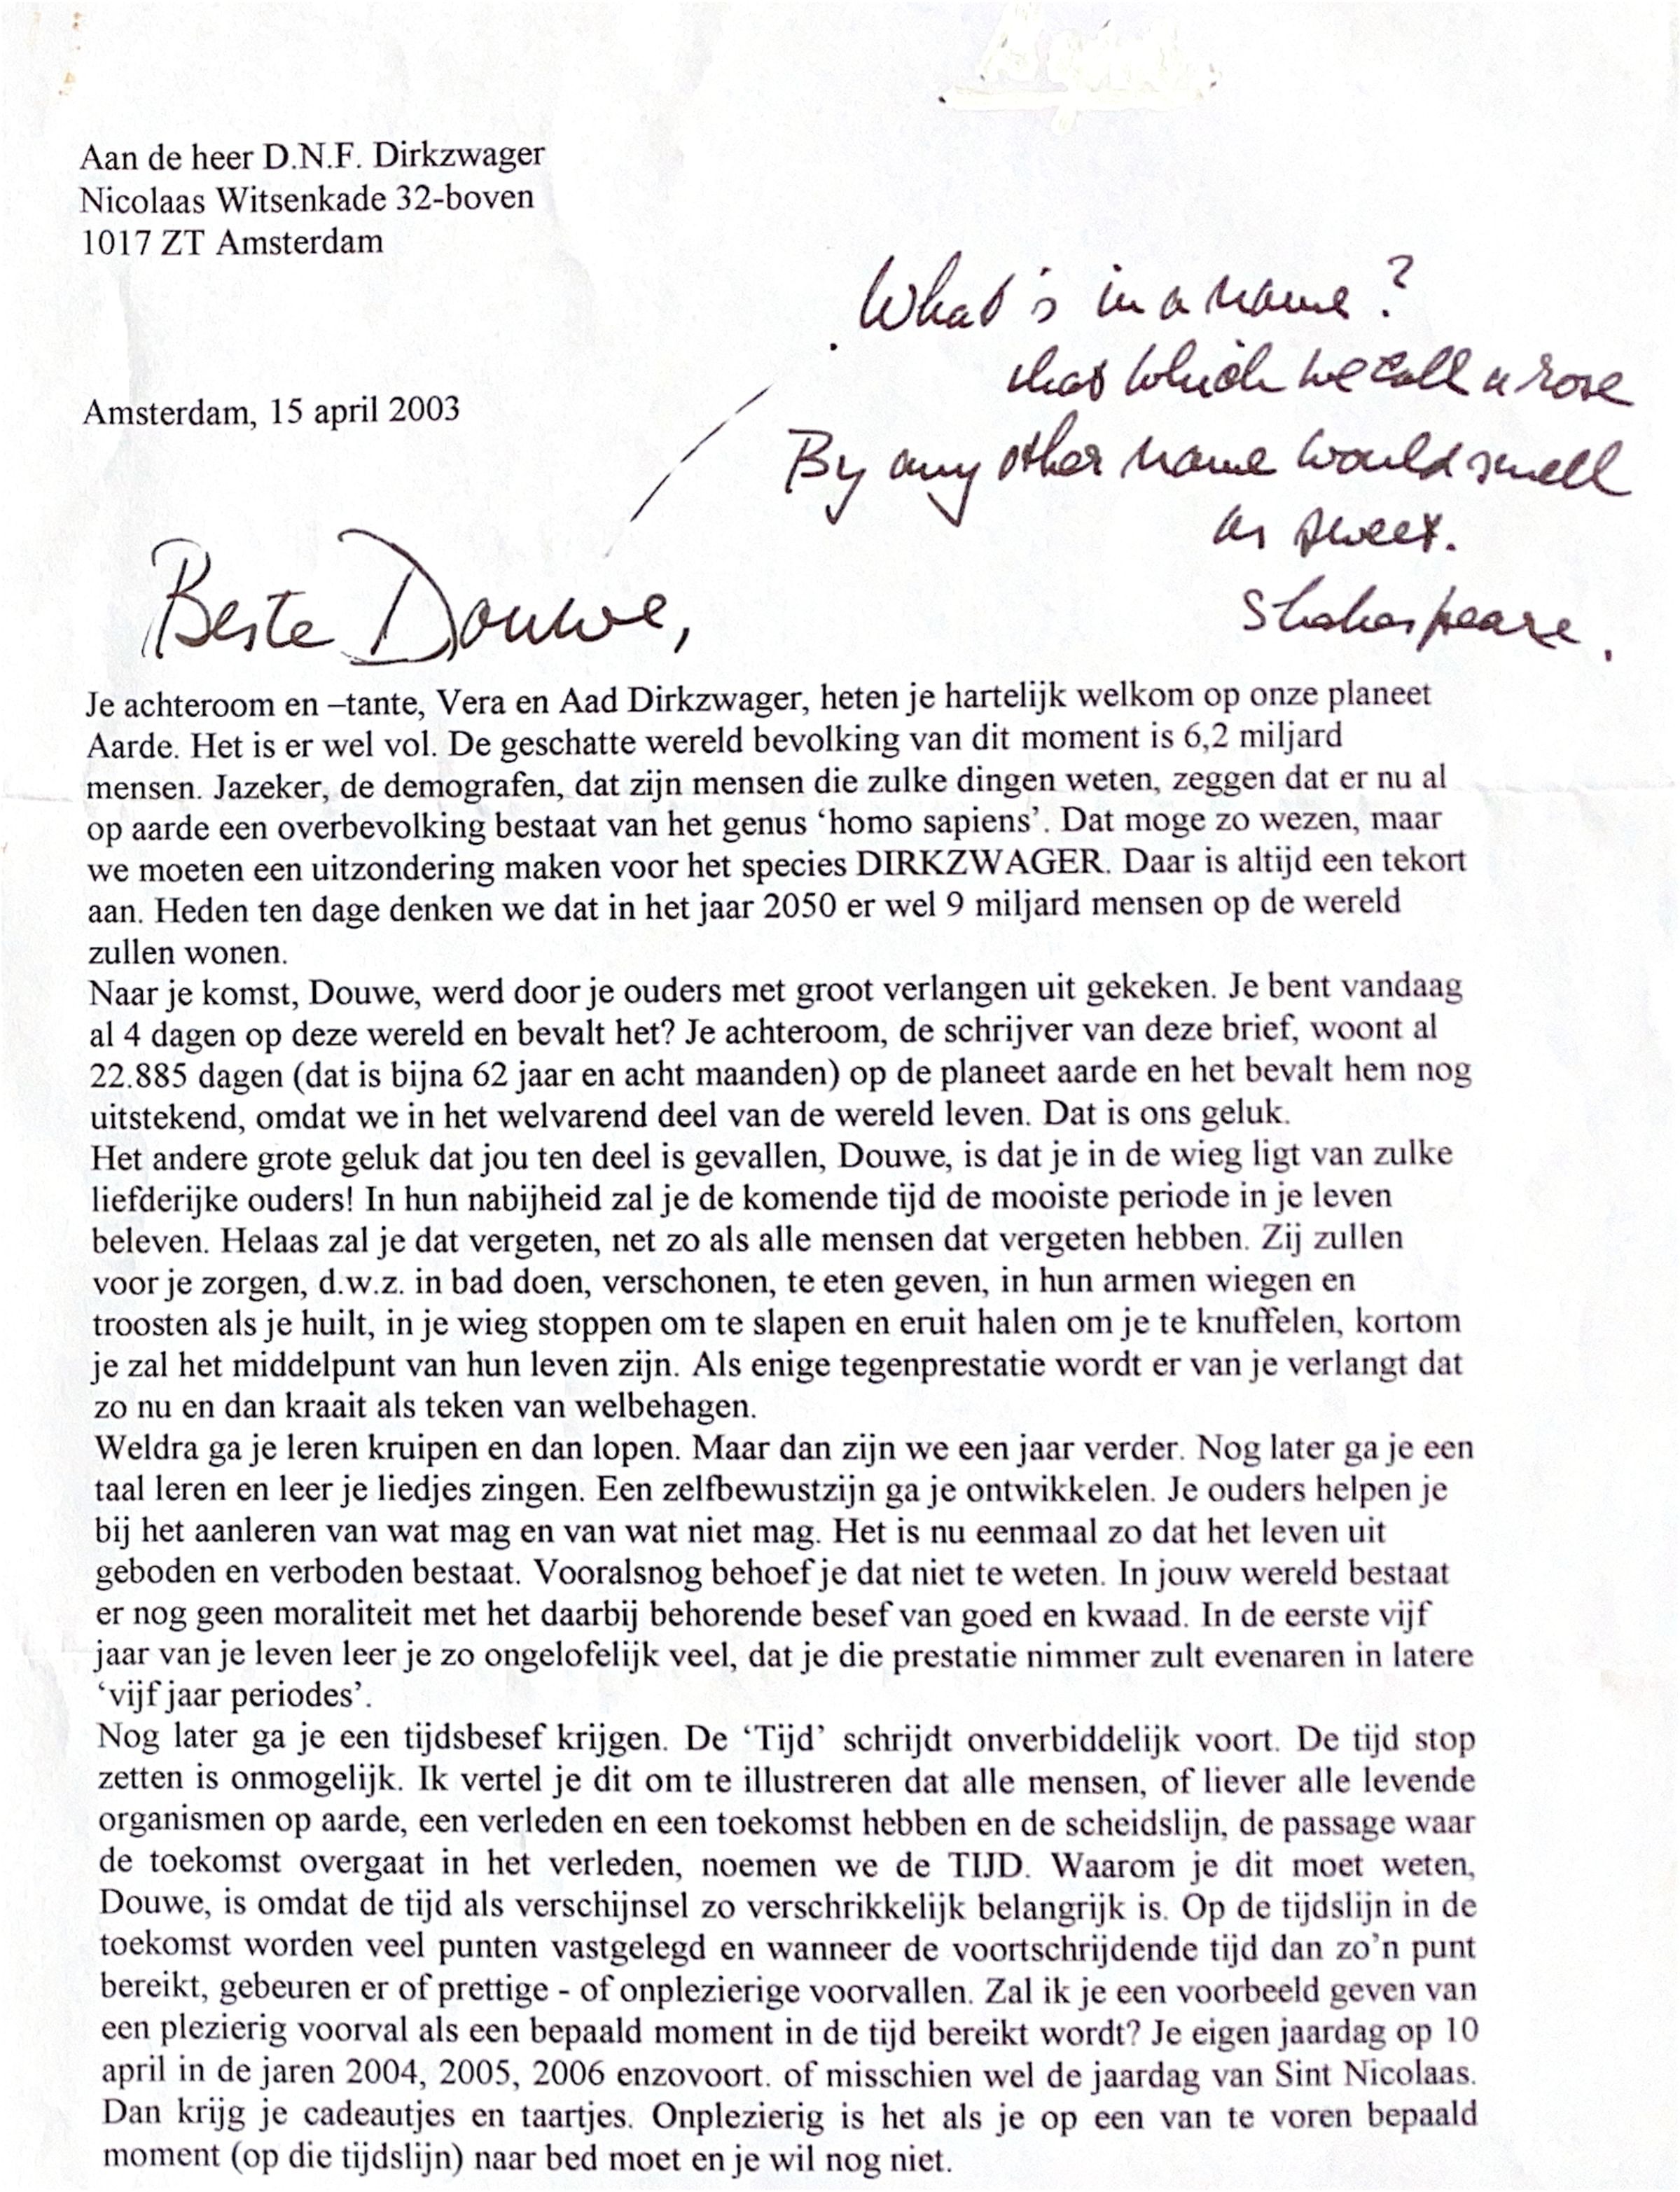 Aan de heer D.N.F. Dirkzwager
Nicolaas Witsenkade 32-boven
1017 ZT Amsterdam
What's in a name?
that which we call a rose
By any other name would smell
as sweet.
Shakespeare.
Amsterdam, 15 april 2003
Beste Douwe,
Je achteroom en –tante, Vera en Aad Dirkzwager, heten je hartelijk welkom op onze planeet
Aarde. Het is er wel vol. De geschatte wereld bevolking van dit moment is 6,2 miljard
mensen. Jazeker, de demografen, dat zijn mensen die zulke dingen weten, zeggen dat er nu al
op aarde een overbevolking bestaat van het genus ‘homo sapiens’. Dat moge zo wezen, maar
we moeten een uitzondering maken voor het species DIRKZWAGER. Daar is altijd een tekort
aan. Heden ten dage denken we dat in het jaar 2050 er wel 9 miljard mensen op de wereld
zullen wonen.
Naar je komst, Douwe, werd door je ouders met groot verlangen uit gekeken. Je bent vandaag
al 4 dagen op deze wereld en bevalt het? Je achteroom, de schrijver van deze brief, woont al
22.885 dagen (dat is bijna 62 jaar en acht maanden) op de planeet aarde en het bevalt hem nog
uitstekend, omdat we in het welvarend deel van de wereld leven. Dat is ons geluk.
Het andere grote geluk dat jou ten deel is gevallen, Douwe, is dat je in de wieg ligt van zulke
liefderijke ouders! In hun nabijheid zal je de komende tijd de mooiste periode in je leven
beleven. Helaas zal je dat vergeten, net zo als alle mensen dat vergeten hebben. Zij zullen
voor je zorgen, d.w.z. in bad doen, verschonen, te eten geven, in hun armen wiegen en
troosten als je huilt, in je wieg stoppen om te slapen en eruit halen om je te knuffelen, kortom
je zal het middelpunt van hun leven zijn. Als enige tegenprestatie wordt er van je verlangt dat
zo nu en dan kraait als teken van welbehagen.
Weldra ga je leren kruipen en dan lopen. Maar dan zijn we een jaar verder. Nog later ga je een
taal leren en leer je liedjes zingen. Een zelfbewustzijn ga je ontwikkelen. Je ouders helpen je
bij het aanleren van wat mag en van wat niet mag. Het is nu eenmaal zo dat het leven uit
geboden en verboden bestaat. Vooralsnog behoef je dat niet te weten. In jouw wereld bestaat
er nog geen moraliteit met het daarbij behorende besef van goed en kwaad. In de eerste vijf
jaar van je leven leer je zo ongelofelijk veel, dat je die prestatie nimmer zult evenaren in latere
‘vijf jaar periodes’.
Nog later ga je een tijdsbesef krijgen. De ‘Tijd’ schrijdt onverbiddelijk voort. De tijd stop
zetten is onmogelijk. Ik vertel je dit om te illustreren dat alle mensen, of liever alle levende
organismen op aarde, een verleden en een toekomst hebben en de scheidslijn, de passage waar
de toekomst overgaat in het verleden, noemen we de TIJD. Waarom je dit moet weten,
Douwe, is omdat de tijd als verschijnsel zo verschrikkelijk belangrijk is. Op de tijdslijn in de
toekomst worden veel punten vastgelegd en wanneer de voortschrijdende tijd dan zo’n punt
bereikt, gebeuren er of prettige - of onplezierige voorvallen. Zal ik je een voorbeeld geven van
een plezierig voorval als een bepaald moment in de tijd bereikt wordt? Je eigen jaardag op 10
april in de jaren 2004, 2005, 2006 enzovoort. of misschien wel de jaardag van Sint Nicolaas.
Dan krijg je cadeautjes en taartjes. Onplezierig is het als je op een van te voren bepaald
moment (op die tijdslijn) naar bed moet en je wil nog niet.